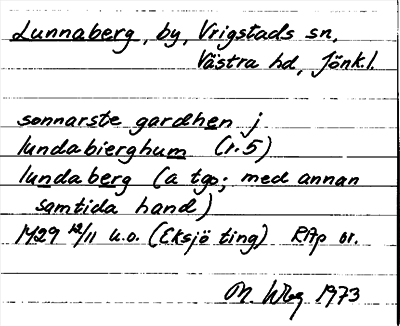 Lunnaberg, by, Vrigstads sn,
Västra hd, Jönk.l.
sonnarste gardhen j
lundabierghum (r. 5)
lundaberg (a tgo; med annan
samtida hand)
1429 12/11 u.o. (Eksjö ting) RAp or.
1973